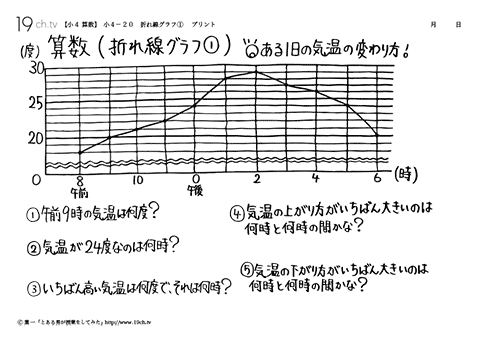 19ch.tv 【小4 算数】 小4-20 折れ線グラフ① プリント 月 日
算数(折れ線グラフ①) ある1日の気温の変わり方!
(度)
30
25
20
0
8 10 0 2 4 6 (時)
午前 午後
①午前9時の気温は何度?
②気温が24度なのは何時?
③いちばん高い気温は何度で、それは何時?
④気温の上がり方がいちばん大きいのは
何時と何時の間かな?
⑤気温の下がり方がいちばん大きいのは
何時と何時の間かな?
Ⓒ葉一「とある男が授業をしてみた」http://www.19ch.tv